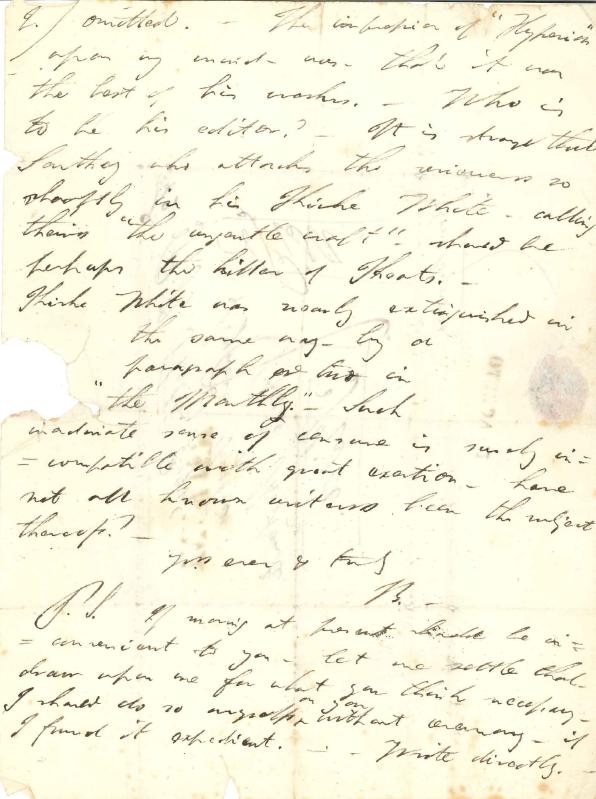 2.) omitted. — The impression of "Hyperion"
upon my mind — was — that it was
the best of his works. — Who is
to be his editor? — It is strange that
Southey who attacks the reviewers so
sharply in his Kirke White — calling
theirs "the ungentle craft" — should be
perhaps the killer of Keats. —
Kirke White was nearly extinguished in
the same way — by a
paragraph or two in
"the Monthly." — Such
inordinate sense of censure is surely in=
=compatible with great exertion — have
not all known writers been the subject
thereof? —
yrs ever & truly
B. —
P.S. If moving at present should be in=
=convenient to you — let me settle that —
draw upon me for what you think necessary —
I should do so myself on you without ceremony — if
I found it expedient. — — Write directly. —